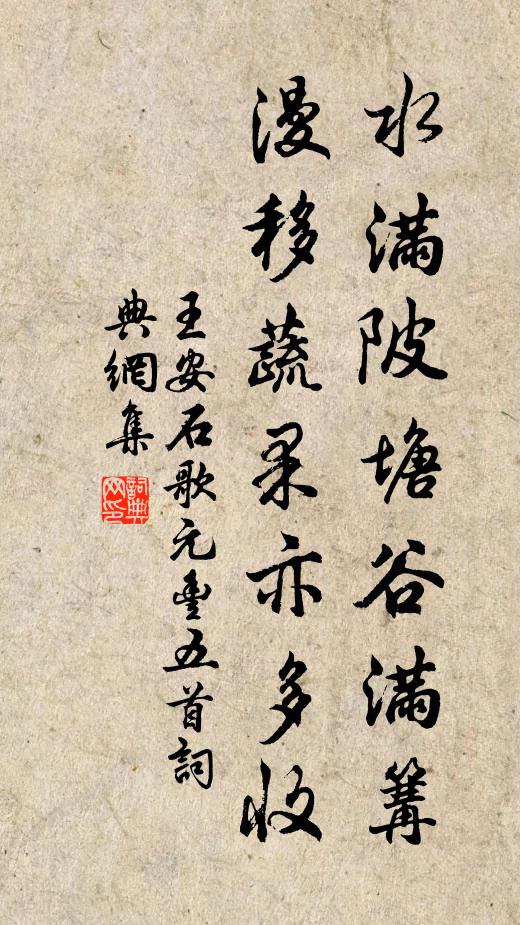 水滿陂塘谷滿篝
漫移蔬果亦多收
王安石歌元豐五首詞
典網集
詞典
网印